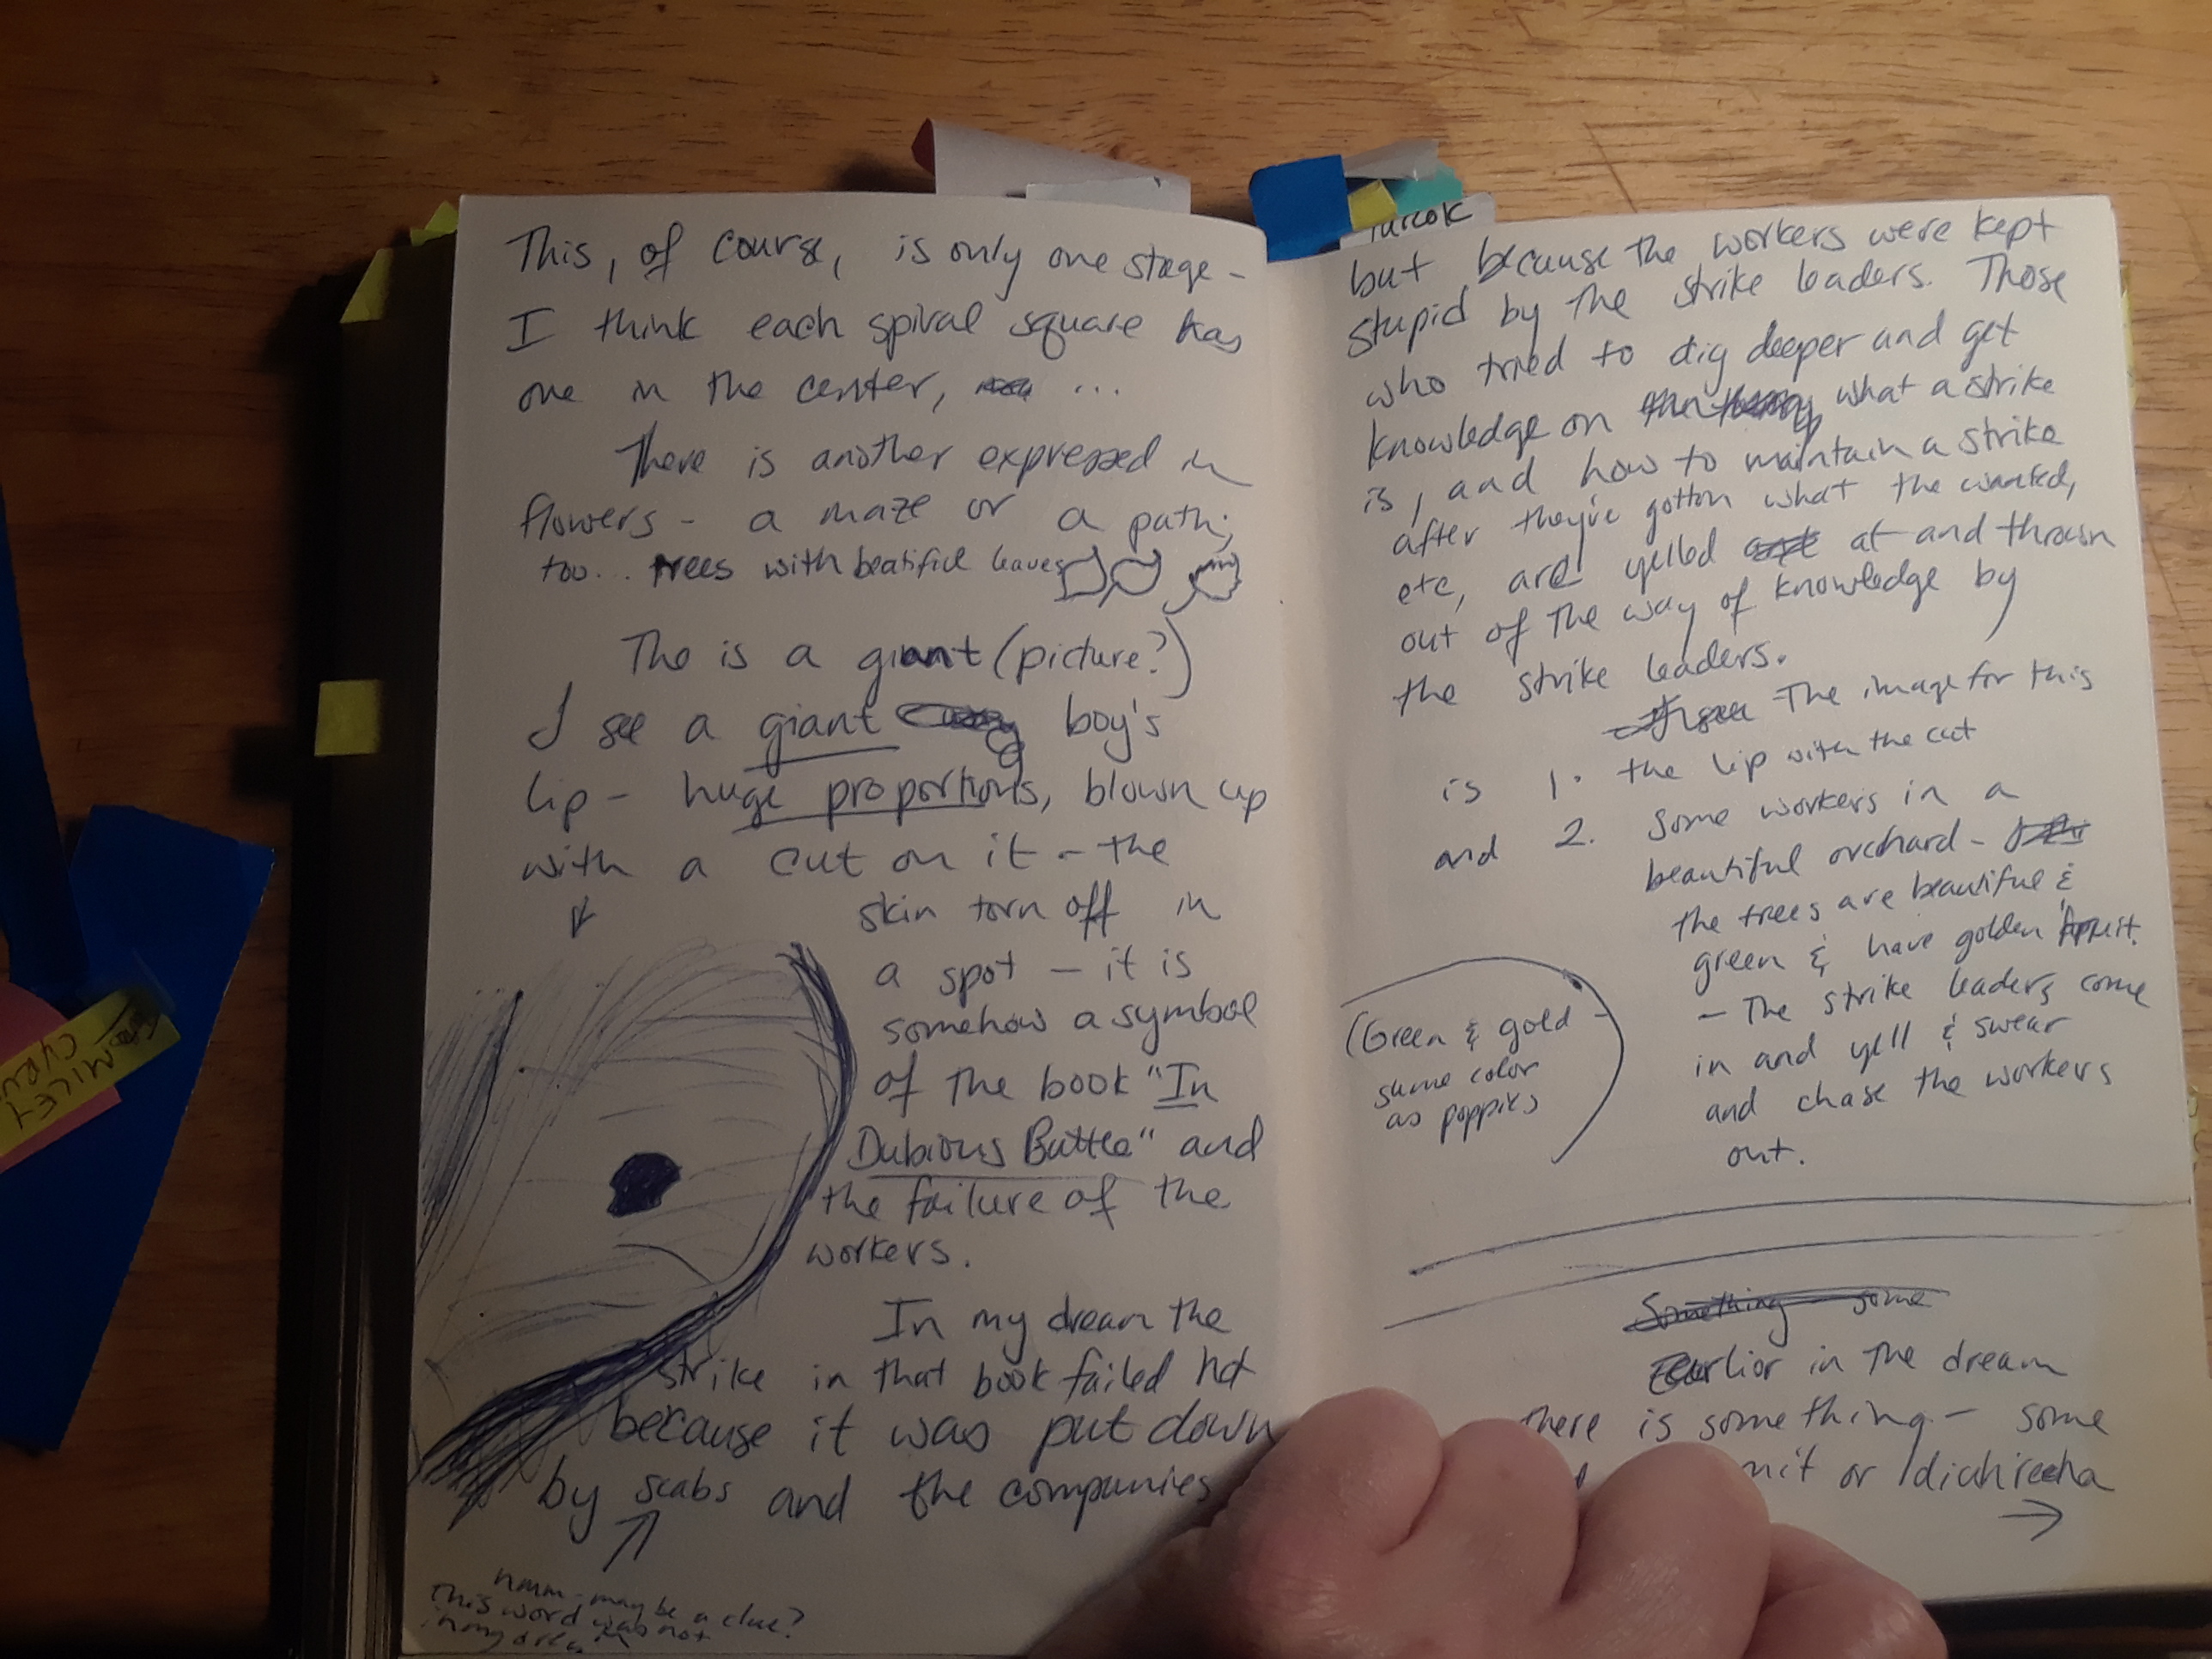 This, of course, is only one stage -
I think each spiral square has
one in the center, ...
There is another expressed in
flowers - a maze or a path;
too... trees with beatiful leaves
The is a giant (picture?)
I see a giant boy's
lip - huge proportions, blown up
with a cut on it - the
skin torn off in
a spot - it is
somehow a symbol
of the book "In
Dubious Battle" and
the failure of the
workers.
In my dream the
strike in that book failed not
because it was put down
by scabs and the companies
hmm - maybe a clue?
this word was not
in my dream
but because the workers were kept
stupid by the strike leaders. Those
who tried to dig deeper and get
knowledge on what a strike
is, and how to maintain a strike
after they've gotton what the wanted,
etc, are yelled at and thrown
out of the way of knowledge by
the strike leaders.
The image for this
is 1. the lip with the cut
and 2. some workers in a
beautiful orchard -
the trees are beautiful &
green & have golden fruit.
- The strike leaders come
in and yell & swear
and chase the workers
out.
(Green & gold -
same color
as poppies
Something - some
Earlior in the dream
there is something - some
or
→
MILEY
CYRUS